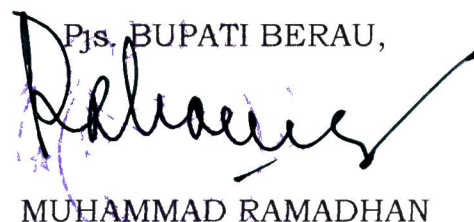 Pjs. BUPATI BERAU,
MUHAMMAD RAMADHAN